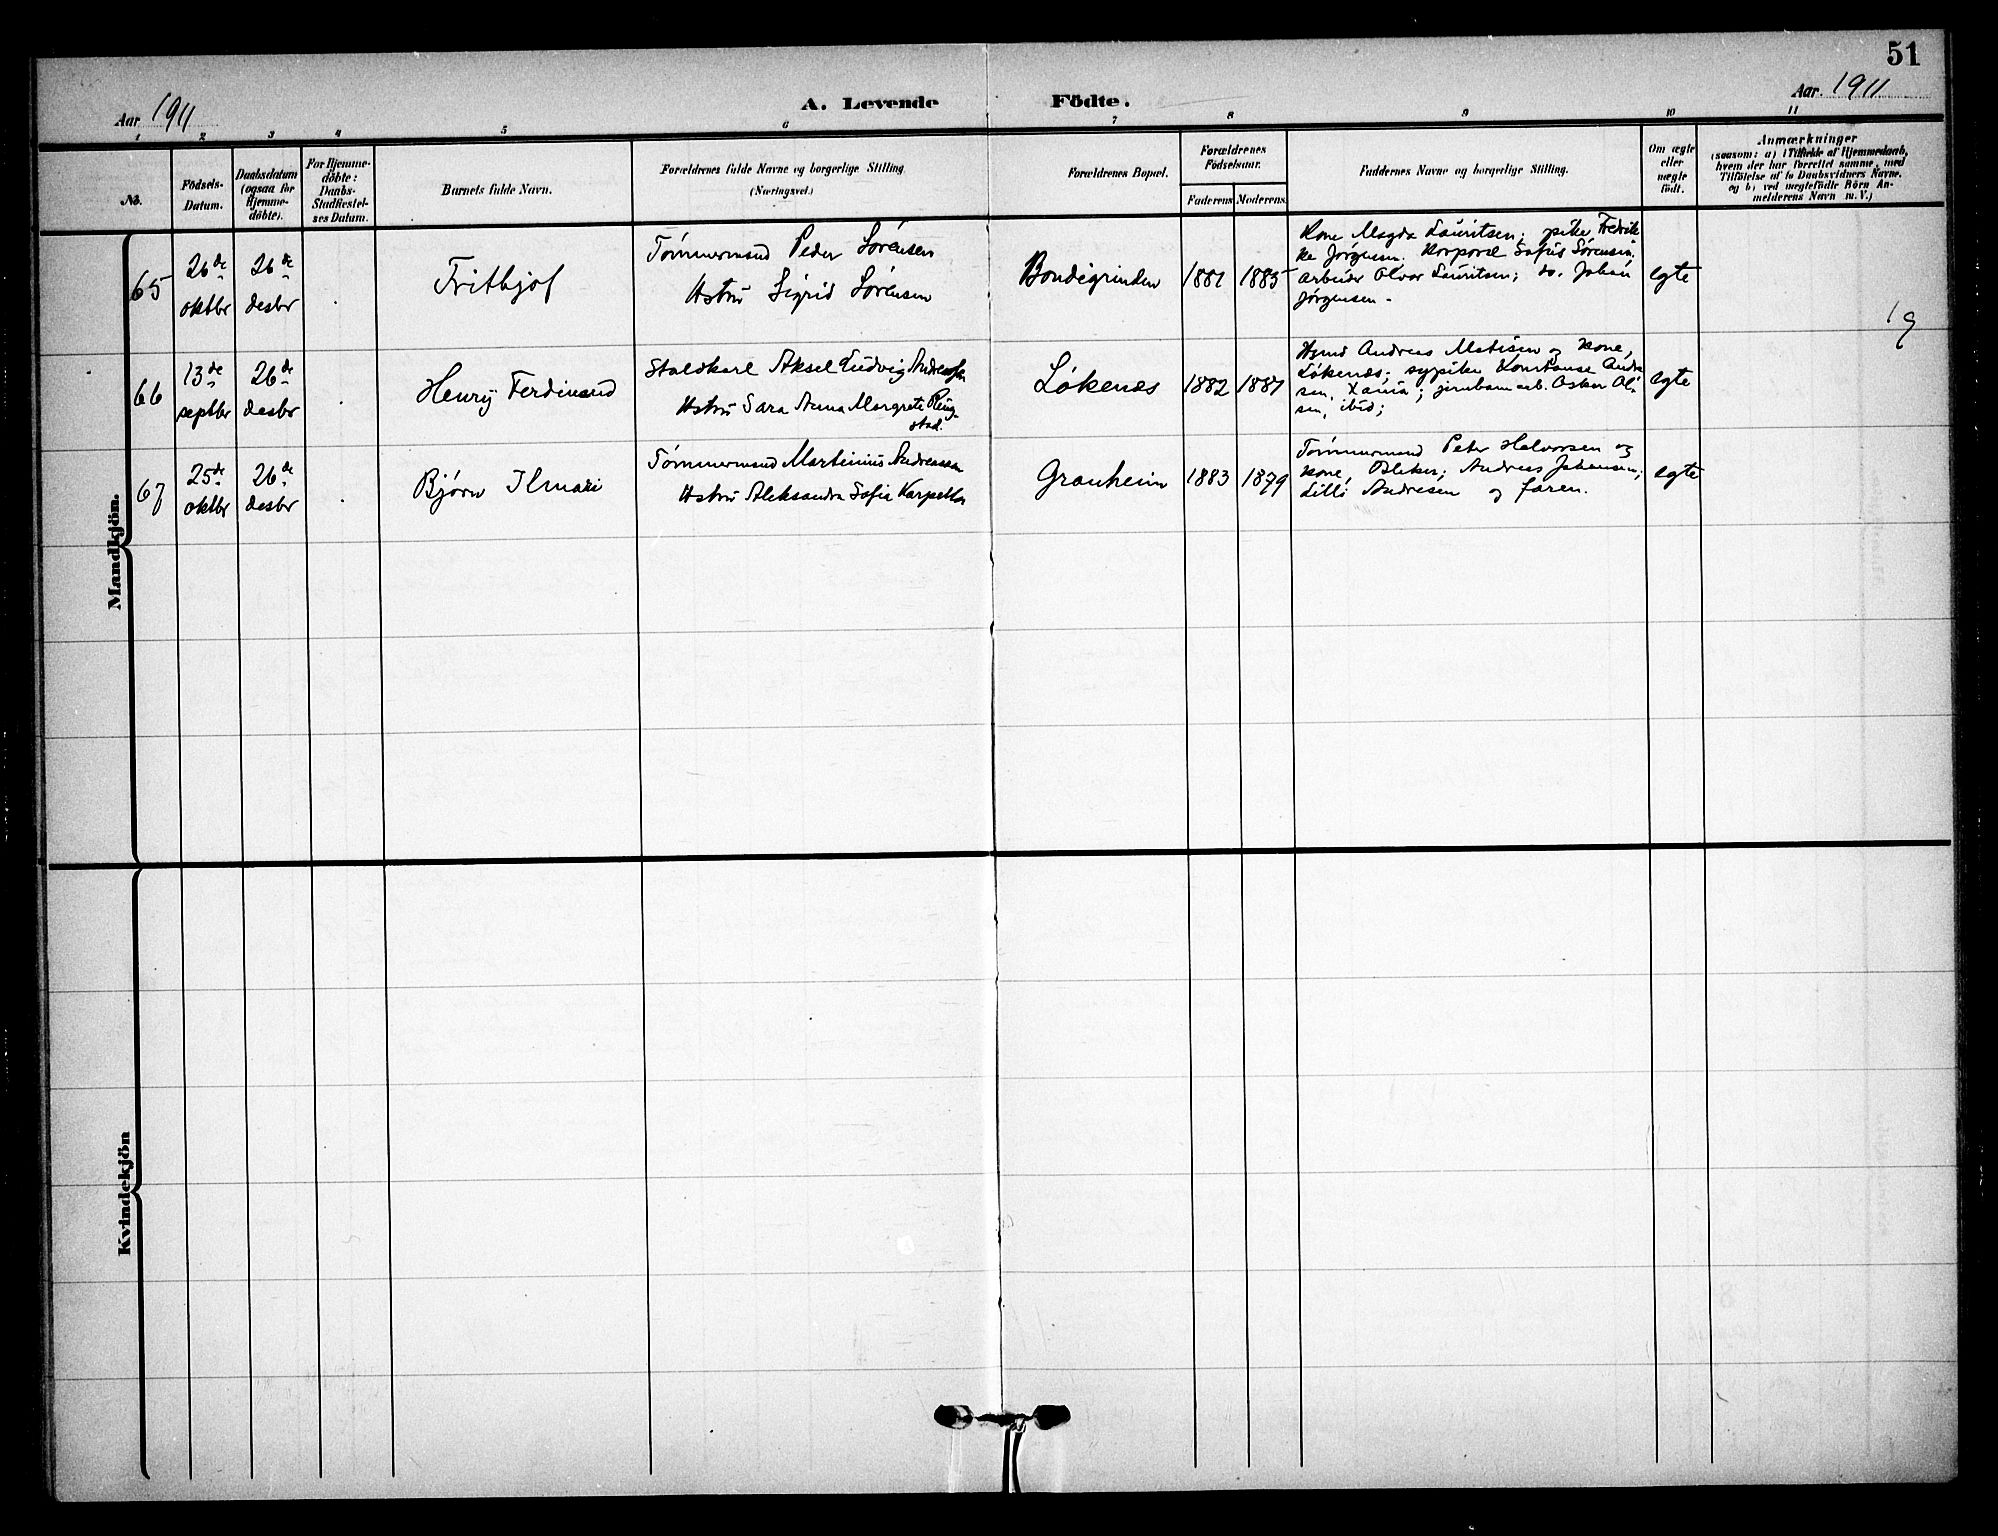 51
Aar 1911
A. Levende Födte.
Aar. 1911
1 2 3 4 5 6 7 8 9 10 11
No.
Födsels-
Datum.
Daabsdatum
(ogsaa for
Hjemme-
döbte).
For Hjemme-
döbte:
Daabs-
Stadfæstel-
ses Datum.
Barnets fulde Navn.
Forældrenes fulde Navne og borgerlige Stilling
(Næringsvei.)
Forældrenes Bopæl.
Forældrenes
Födselsaar.
Faderens Moderens.
Faddernes Navne og borgerlige Stilling.
Om ægte
eller
uægte
födt.
Anmærkninger
(saasom: a) i Tilfælde af Hjemmedaab,
hvem der har forrettet samme, med
Tilföielse af to Daabsvidners Navne.
og b) ved uægtefödte Börn An-
melderens Navn m. V.)
Mandkjön.
65
26de
oktbr
26de
desbr
Fritbjof
Tømmermand Peder Sørensen
Hstru Sigrid Sørensen
Bondegrinden
1881 1885
Kone Magda Lauritsen; pike Fredrik
ke Jørgensen. Korporal Sofus Sørensen,
arbeider Olvar Lauritsen; do. Johan
Jørgensen.
egte
19
66
13de
septbr
26de
desbr
Henry Ferdinand
Staldkarl Aksel Ludvig Andressen
Hstru Sara Anna Margrete Ring-
stad.
Løkenes
1882 1887
Hmd Andreas Matisen og kone,
Løkenes; sypike Konstanse Andre
sen, ; jernbanearb. Oskar Ol-
sen, ibid;
egte
67
25de
oktbr
26de
desbr
Bjørn Ilmari
Tømmermand Martinius Andreassen
Hstru Aleksandra Sofia
Granheim
1883 1879
Tømmermand Peter Halvorsen og
kone, ; Andreas Johansen;
Lilli Andresen og faren.
egte
Kvindekjön